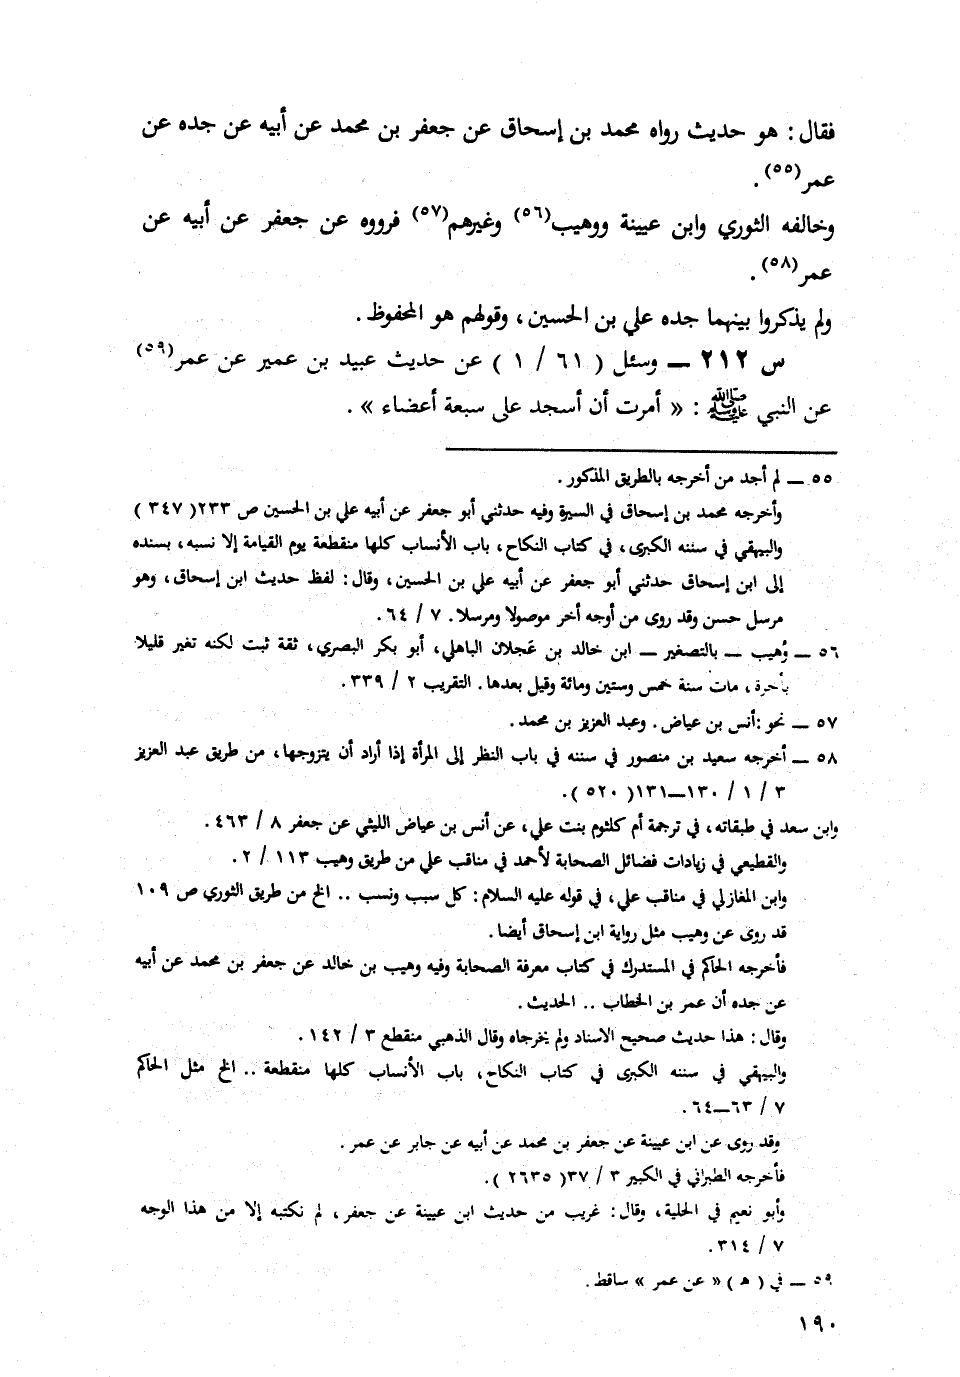 فقال : هو حديث رواه محمد بن إسحاق عن جعفر بن محمد عن أبيه عن جده عن
عمر(٥٥) .
وخالفه الثوري وابن عيينة ووهيب(٥٦) وغيرهم(٥٧) فرووه عن جعفر عن أبيه عن
عمر(٥٨) .
ولم يذكروا بينهما جده علي بن الحسين ، وقولهم هو المحفوظ .
س ٢١٢ ــ وسئل ( ٦١ / ١ ) عن حديث عبيد بن عمير عن عمر(٥٩)
عن النبي ﷺ : « أمرت أن أسجد على سبعة أعضاء » .
٥٥ ــ لم أجد من أخرجه بالطريق المذكور .
وأخرجه محمد بن إسحاق في السيرة وفيه حدثني أبو جعفر عن أبيه علي بن الحسين ص ٢٣٣( ٣٤٧ )
والبيهقي في سننه الكبرى ، في كتاب النكاح ، باب الأنساب كلها منقطعة يوم القيامة إلا نسبه ، بسنده
إلى ابن إسحاق حدثني أبو جعفر عن أبيه علي بن الحسين ، وقال : لفظ حديث ابن إسحاق ، وهو
مرسل حسن وقد روى من أوجه أخر موصولا ومرسلا . ٧ / ٦٤ .
٥٦ ــ وُهيب ــ بالتصغير ــ ابن خالد بن عَجلان الباهلي ، أبو بكر البصري ، ثقة ثبت لكنه تغير قليلا
بأخرة ، مات سنة خمس وستين ومائة وقيل بعدها . التقريب ٢ / ٣٣٩ .
٥٧ ــ نحو : أنس بن عياض . وعبد العزيز بن محمد .
٥٨ ــ أخرجه سعيد بن منصور في سننه في باب النظر إلى المرأة إذا أراد أن يتزوجها ، من طريق عبد العزيز
٣ / ١ / ١٣٠ــ١٣١( ٥٢٠ ) .
وابن سعد في طبقاته ، في ترجمة أم كلثوم بنت علي ، عن أنس بن عياض الليثي عن جعفر ٨ / ٤٦٣ .
والقطيعي في زيادات فضائل الصحابة لأحمد في مناقب علي من طريق وهيب ١١٣ / ٢ .
وابن المغازلي في مناقب علي ، في قوله عليه السلام : كل سبب ونسب .. الخ من طريق الثوري ص ١٠٩
قد روى عن وهيب مثل رواية ابن إسحاق أيضا .
فأخرجه الحاكم في المستدرك في كتاب معرفة الصحابة وفيه وهيب بن خالد عن جعفر بن محمد عن أبيه
عن جده أن عمر بن الخطاب .. الحديث .
وقال : هذا حديث صحيح الاسناد ولم يخرجاه وقال الذهبي منقطع ٣ / ١٤٢ .
والبيهقي في سننه الكبرى في كتاب النكاح ، باب الأنساب كلها منقطعة .. الخ مثل الحاكم
٧ / ٦٣ــ٦٤ .
وقد روى عن ابن عيينة عن جعفر بن محمد عن أبيه عن جابر عن عمر .
فأخرجه الطبراني في الكبير ٣ / ٣٧( ٢٦٣٥ ) .
وأبو نعيم في الحلية ، وقال : غريب من حديث ابن عيينة عن جعفر ، لم نكتبه إلا من هذا الوجه
٧ / ٣١٤ .
٥٩ ــ في ( هـ ) « عن عمر » ساقط .
١٩٠